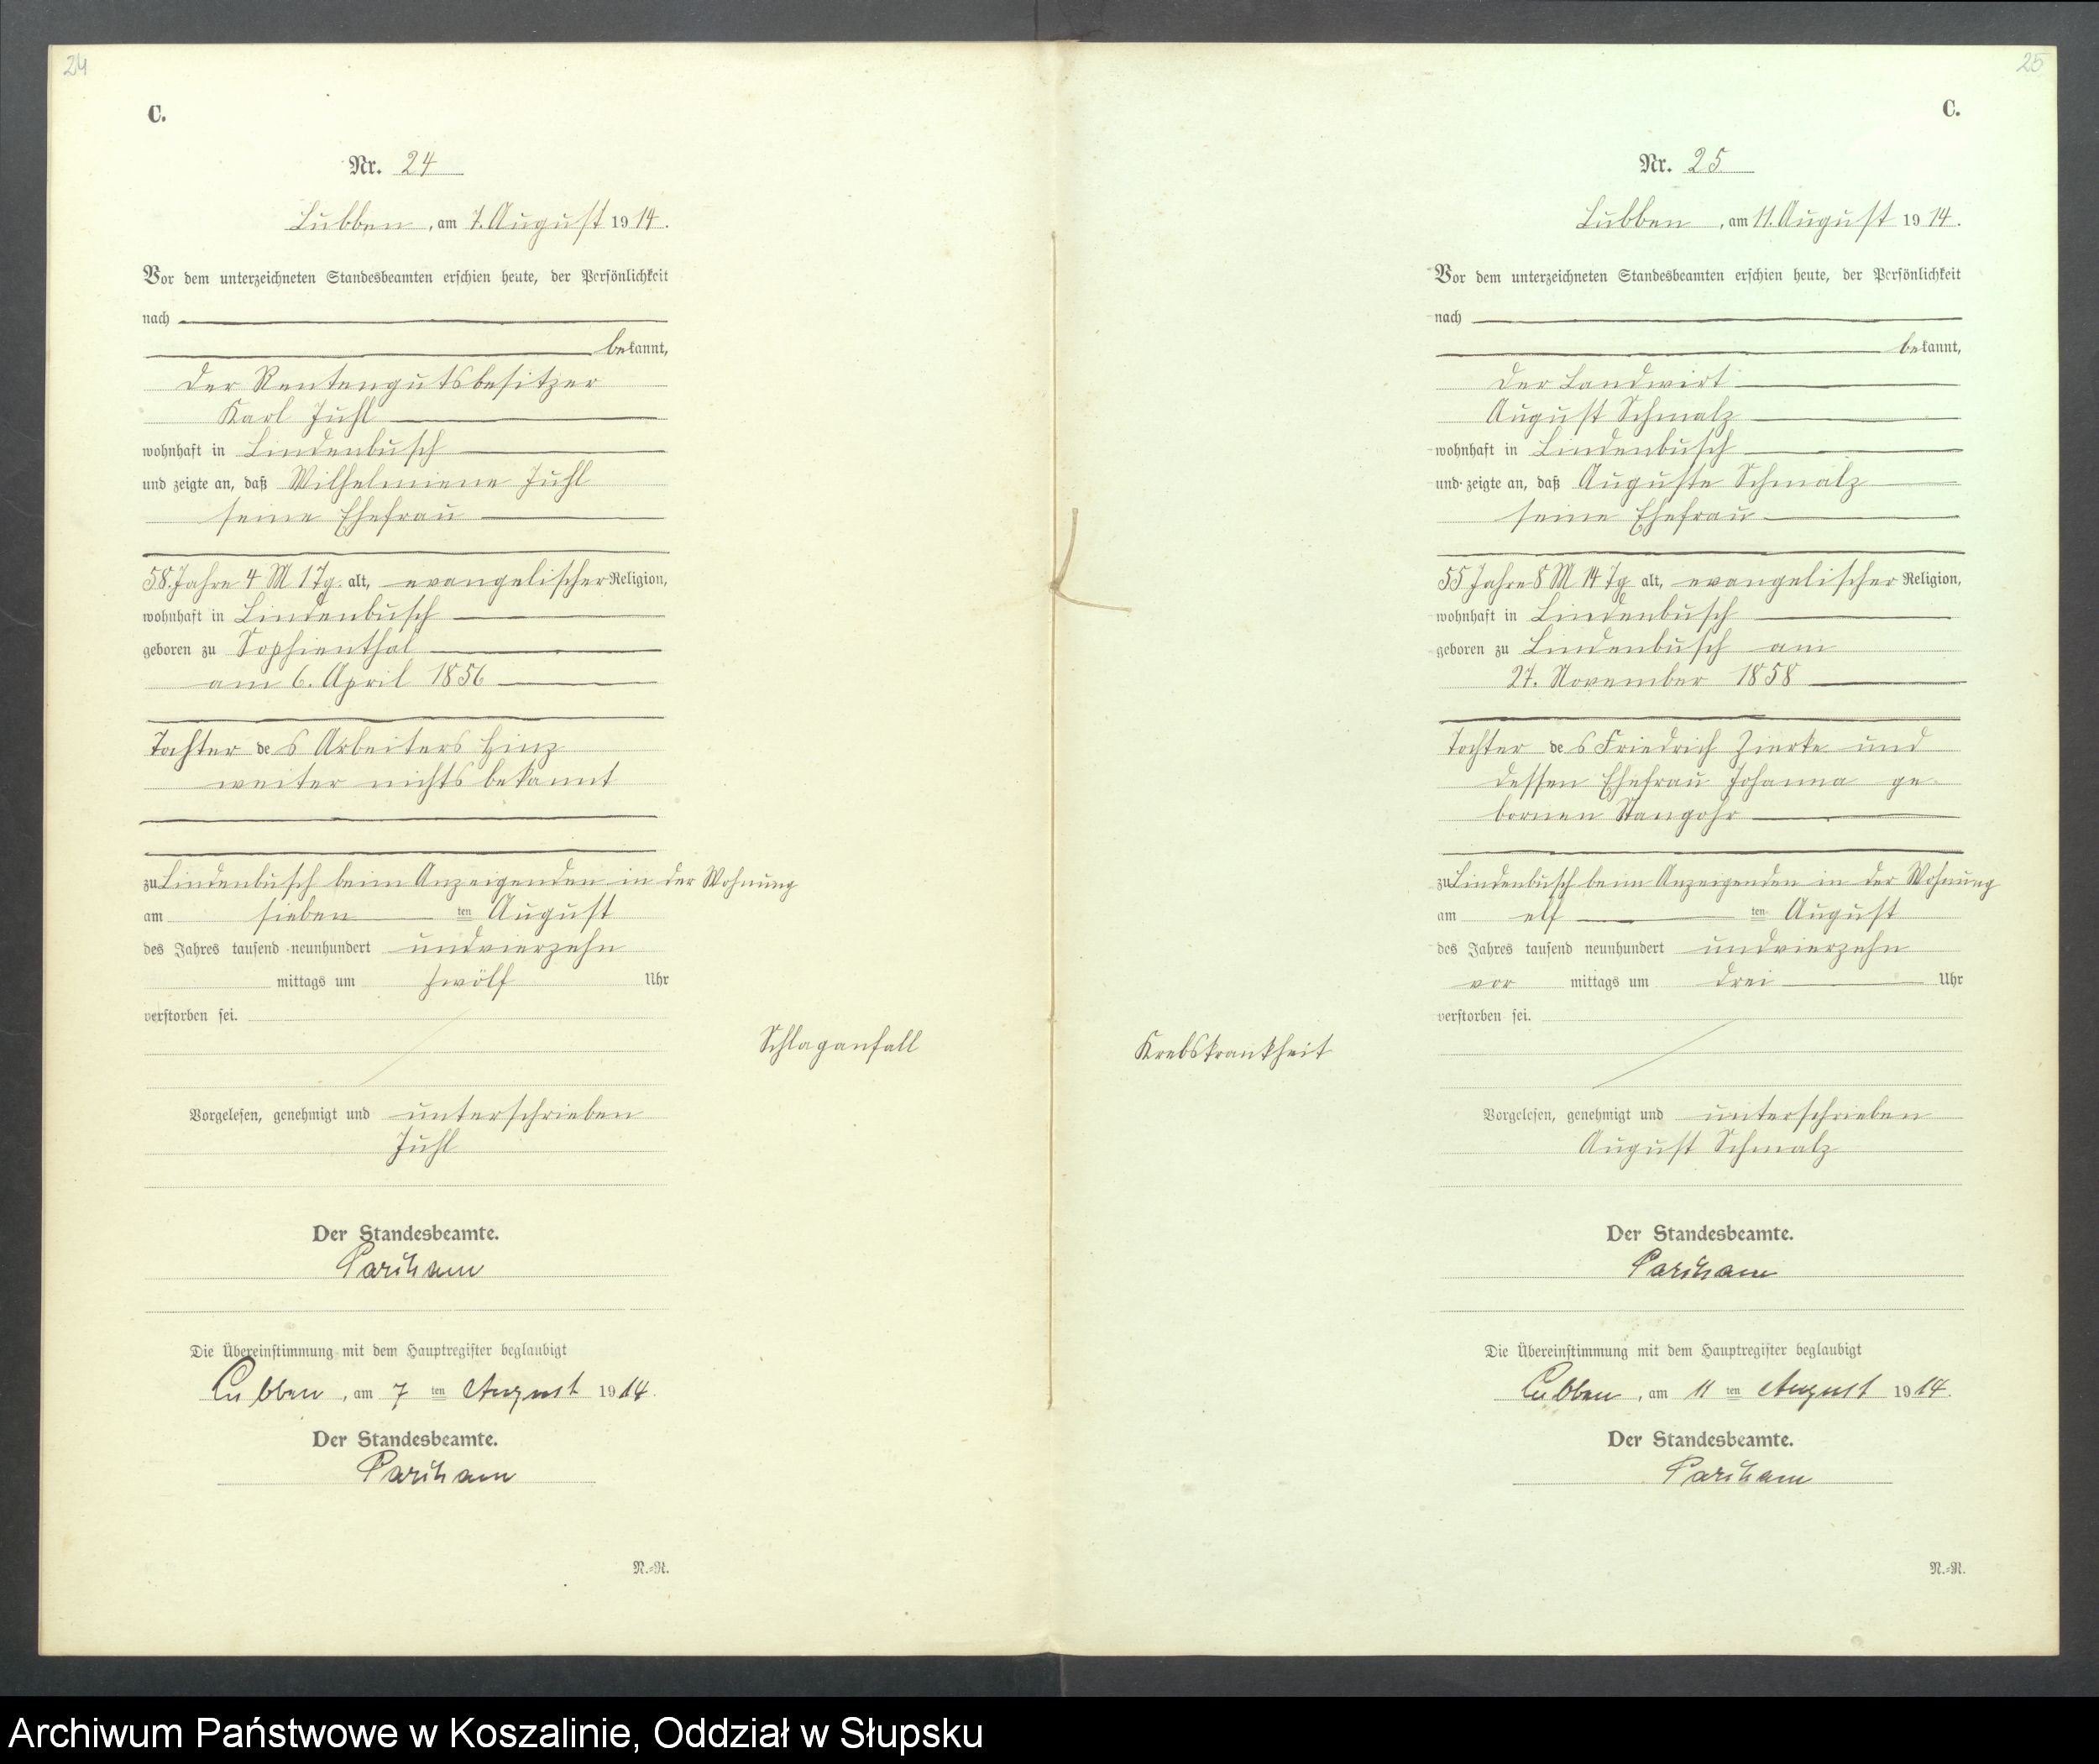 24
C.
Nr. 24
Lubben, am 7. August 1914.
Vor dem unterzeichneten Standesbeamten erschien heute, der Persönlichkeit
nach
bekannt,
der Rentengutsbesitzer
Karl Juhl
wohnhaft in Lindenbusch
und zeigte an, daß Wilhelmiene Juhl
seine Ehefrau
58. Jahre 4 M 1 Tg. alt, evangelischer Religion,
wohnhaft in Lindenbusch
geboren zu Sophienthal
am 6. April 1856
Tochter des Arbeiters Hinz
weiter nichts bekannt
zu Lindenbusch beim Anzeigenden in der Wohnung
am sieben ten August
des Jahres tausend neunhundert undvierzehn
mittags um zwölf Uhr
verstorben sei.
Schlaganfall
Vorgelesen, genehmigt und unterschrieben
Juhl
Der Standesbeamte.
Die Übereinstimmung mit dem Hauptregister beglaubigt
Lubben, am 7 ten August 1914.
Der Standesbeamte.
N.=R.
25
C.
Nr. 25
Lubben, am 11. August 1914.
Vor dem unterzeichneten Standesbeamten erschien heute, der Persönlichkeit
nach
bekannt,
der Landwirt
August Schmalz
wohnhaft in Lindenbusch
und zeigte an, daß Auguste Schmalz
seine Ehefrau
55 Jahre 8 M 14 Tg alt, evangelischer Religion,
wohnhaft in Lindenbusch
geboren zu Lindenbusch am
27. November 1858
Tochter des Friedrich Zierke und
dessen Ehefrau Johanna ge-
bornen Stangohr
zu Lindenbusch beim Anzeigenden in der Wohnung
am elf ten August
des Jahres tausend neunhundert undvierzehn
vor mittags um drei Uhr
verstorben sei.
Krebskrankheit
Vorgelesen, genehmigt und unterschrieben
August Schmalz
Der Standesbeamte.
Die Übereinstimmung mit dem Hauptregister beglaubigt
Lubben, am 11 ten August 1914.
Der Standesbeamte.
N.=R.
Archiwum Państwowe w Koszalinie, Oddział w Słupsku